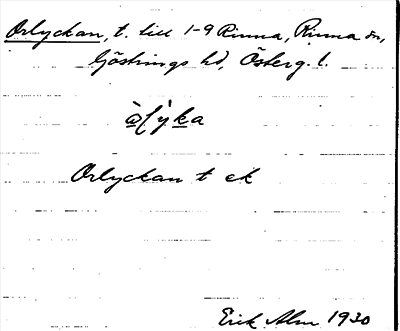 Orlyckan, t. till 1-9 Rinna, Rinna sn,
Göstrings hd, Österg. l.
Orlyckan t ek
Erik Alm 1930